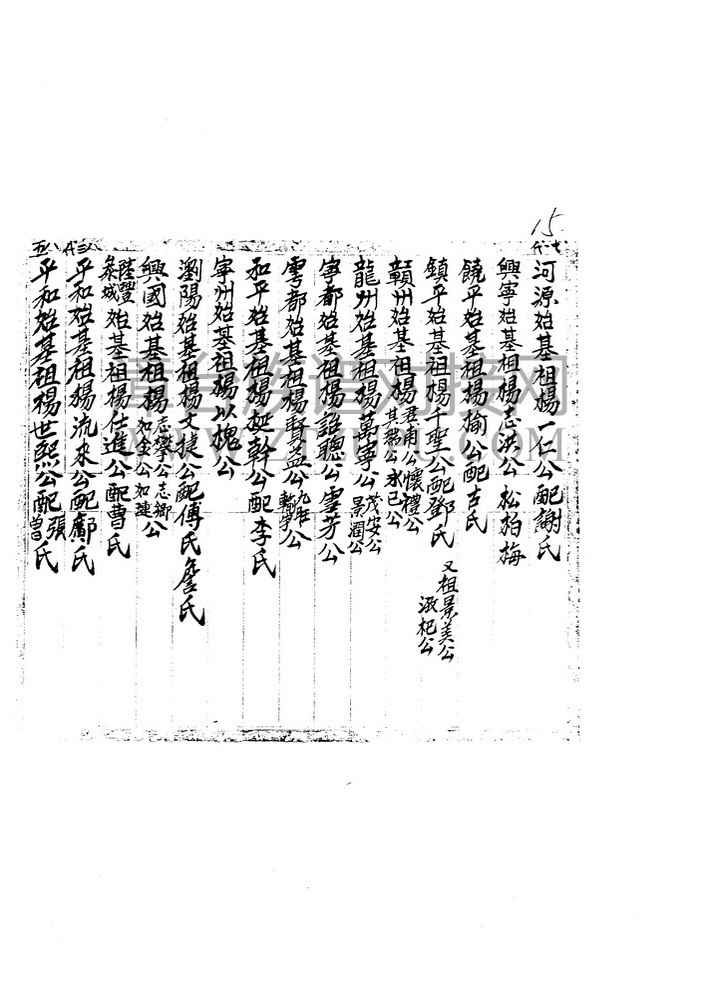 15
河源始基祖楊一仁公配謝氏
興寧始基祖楊志洪公 松柏梅
饒平始基祖楊榆公配古氏
鎮平始基祖楊千聖公配鄧氏 又祖景美公 淑杞公
贛州始基祖楊君甫公懷禮公 其瑞公永已公
龍州始基祖楊萬寧公茂安公 景潤公
寧都始基祖楊詔聰公雲芳公
雩都始基祖楊賢益公 公
和平始基祖楊梃幹公配李氏
寧州始基祖楊以槐公
瀏陽始基祖楊文捷公配傅氏詹氏
興國始基祖楊志學公志鄉公 如金公如建
陸豐 城始基祖楊任進公配曹氏
平和始基祖楊流來公配鄺氏
平和始基祖楊世熙公配張曾氏